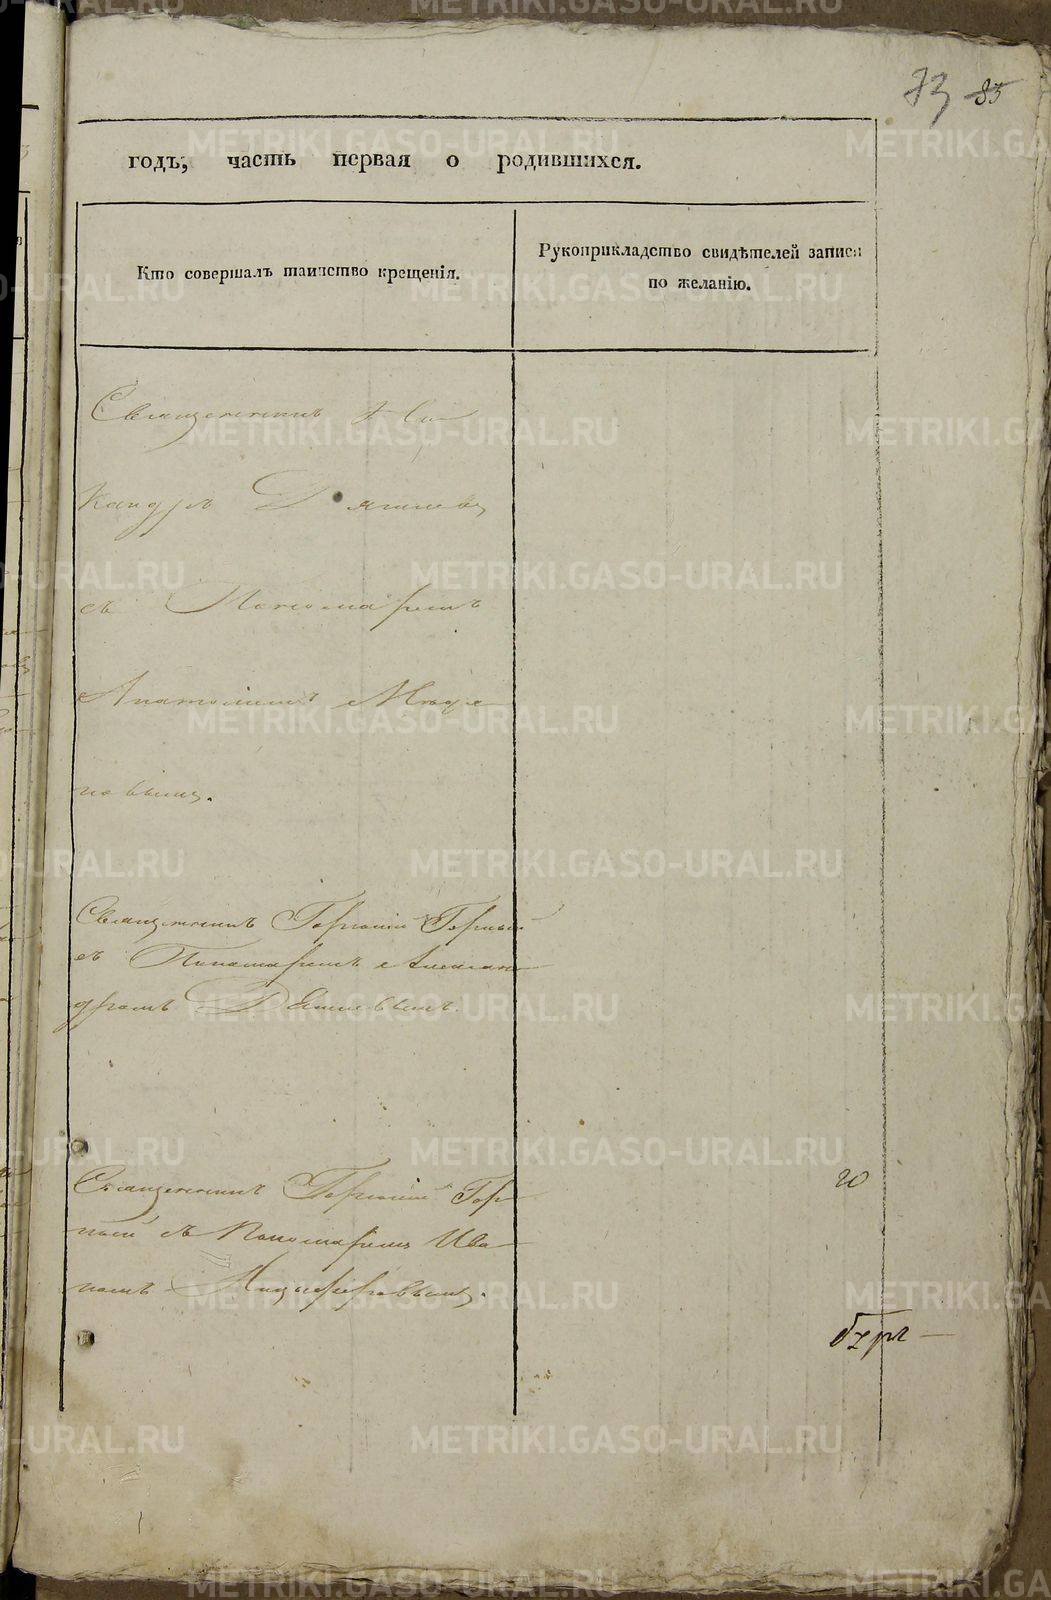 73 85
годъ, часть первая о родившихся.
Кто совершалъ таинство крещенія.
Рукоприкладство свидѣтелей записи
по желанію.
Священникъ
кандръ Дягилевъ
съ Пономаремъ
Анатоліемъ
новымъ.
Священникъ Георгій Горный
съ Пономаремъ Алексан
дромъ Дягилевымъ.
Священникъ Георгій Гор
ный съ Пономаремъ Ива
номъ
20
METRIKI.GASO-URAL.RU